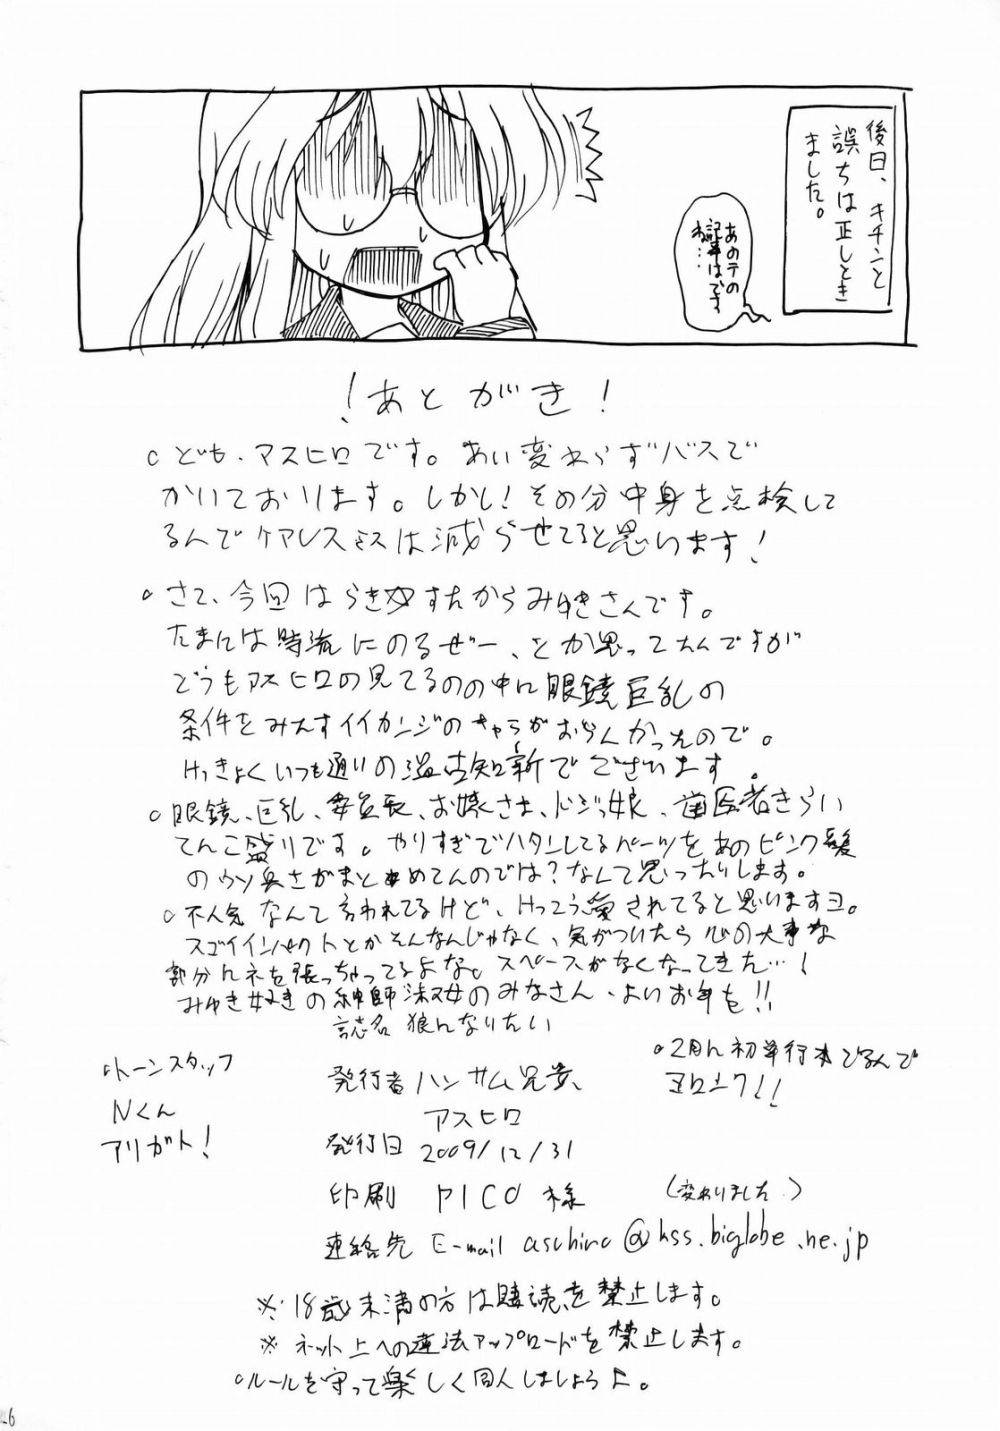 後日、キチンと
誤ちは正しとき
ました。
あのテの
記事はです
ね…
！あとがき！
○ども、アスヒロです。あい変わらずバスで
かいております。しかし！その分中身を点検して
るんでケアレスミスは減らせてると思います！
○さて、今回はらき☆すたからみゆきさんです。
たまには時流にのるぜー、とか思ってたんですが
どうもアスヒロの見てるのの中に眼鏡巨乳の
条件をみたすイイカンジのキャラがおらんかったので。
けっきょくいつも通りの温古知新でございます。
○眼鏡、巨乳、委員長、お嬢さま、ドジっ娘、歯医者きらい
てんこ盛りです。やりすぎでハタンしてるパーツをあのピンク髪
のウソ臭さがまとめてんのでは？なんて思ったりします。
○不人気なんて言われてるけど、けっこう愛されてると思いますヨ。
スゴイインパクトとかそんなんじゃなく、気がついたら心の大事な
部分にネを張っちゃってるよな。スペースがなくなってきた…！
みゆき好きの紳師淑女のみなさん、よいお年を!!
誌名 狼になりたい
○トーンスタッフ
Nくん
アリガト！
発行者 ハンサム兄貴、
アスヒロ
発行日 2009/12/31
印刷 PICO 様
○2月に初単行本でるんで
ヨロシク!!
（変わりました）
連絡先 E-mail asuhiro@kss.biglobe.ne.jp
※18歳未満の方は購読を禁止します。
※ネット上への違法アップロードを禁止します。
○ルールを守って楽しく同人しましょう♪。
6